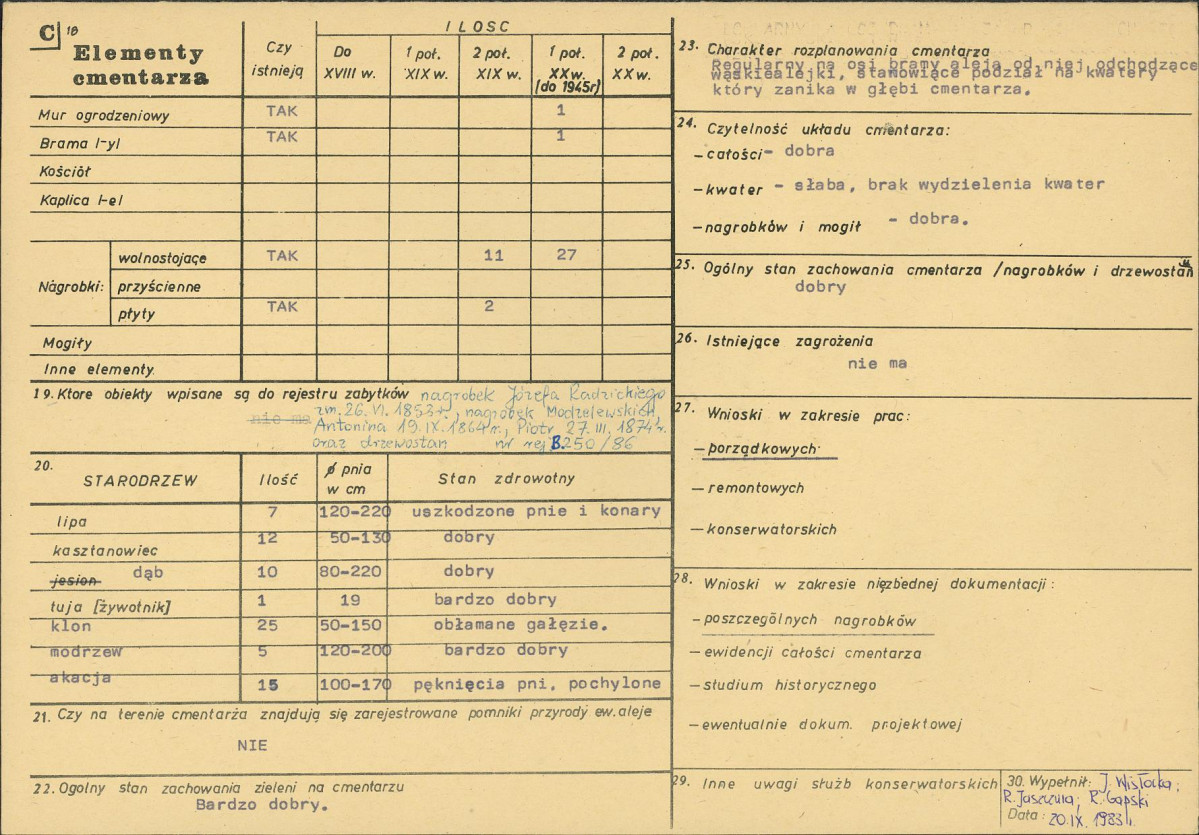 C 18
Elementy
cmentarza
Czy
istnieją
ILOSC
Do
XVIII w.
1 poł.
XIX w.
2 poł.
XIX w.
1 poł.
XX w.
(do 1945r)
2 poł.
XX w.
Mur ogrodzeniowy TAK 1
Brama I-yl TAK 1
Kościół
Kaplica I-el
Nagrobki:
wolnostojące TAK 11 27
przyścienne
płyty TAK 2
Mogiły
Inne elementy
19. Ktore obiekty wpisane są do rejestru zabytków nagrobek Józefa Radzickiego
nie ma zm. 26.VI.1853r., nagrobek Modzelewskich,
Antonina 19.IX.1864r., Piotr 27.III.1874r.
oraz drzewostan nr rej B.250/86
20.
STARODRZEW
Ilość
ø pnia
w cm
Stan zdrowotny
lipa 7 120-220 uszkodzone pnie i konary
kasztanowiec 12 50-130 dobry
jesion dąb 10 80-220 dobry
tuja [żywotnik] 1 19 bardzo dobry
klon 25 50-150 obłamane gałęzie.
modrzew 5 120-200 bardzo dobry
akacja 15 100-170 pęknięcia pni, pochylone
21. Czy na terenie cmentarża znajdują się zarejestrowane pomniki przyrody ew. aleje
NIE
22. Ogolny stan zachowania zieleni na cmentarzu
Bardzo dobry.
23. Charakter rozplanowania cmentarza
Regularny na osi bramy aleja od niej odchodzące
wąskiealejki, stanowiące podział na kwatery
który zanika w głębi cmentarza.
24. Czytelność układu cmentarza:
- całości - dobra
- kwater - słaba, brak wydzielenia kwater
- nagrobków i mogił - dobra.
25. Ogólny stan zachowania cmentarza /nagrobków i drzewostan
dobry
26. Istniejące zagrożenia
nie ma
27. Wnioski w zakresie prac:
- porządkowych
- remontowych
- konserwatorskich
28. Wnioski w zakresie niezbednej dokumentacji:
- poszczególnych nagrobków
- ewidencji całości cmentarza
- studium historycznego
- ewentualnie dokum. projektowej
29. Inne uwagi służb konserwatorskich
30. Wypełnił: J. Wisłocka;
R. Jaszczuła; R. Gapski
Data: 20.IX.1983r.